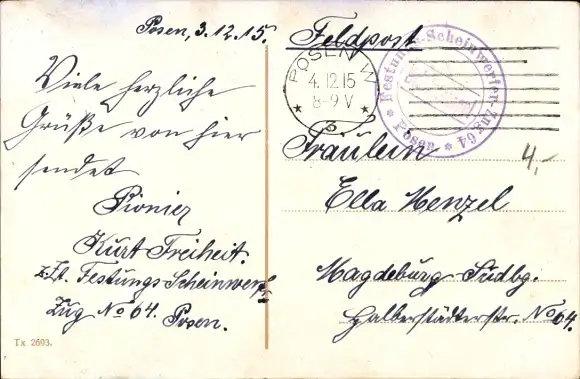 Posen, 3.12.15.
Viele herzliche
Grüße von hier
sendet
Pionier
Kurt Freiheit.
z. Zt. Festungs-Scheinwerf.
Zug No 64. Posen.
Tx 2693.
Feldpost
POSEN W
4.12.15
8-9 V
* 3 *
Festungs-Scheinwerfer-Zug 64
* Posen *
4,-
Fräulein
Ella Henzel
Magdeburg-Südbg.
Halberstädterstr. No 64.